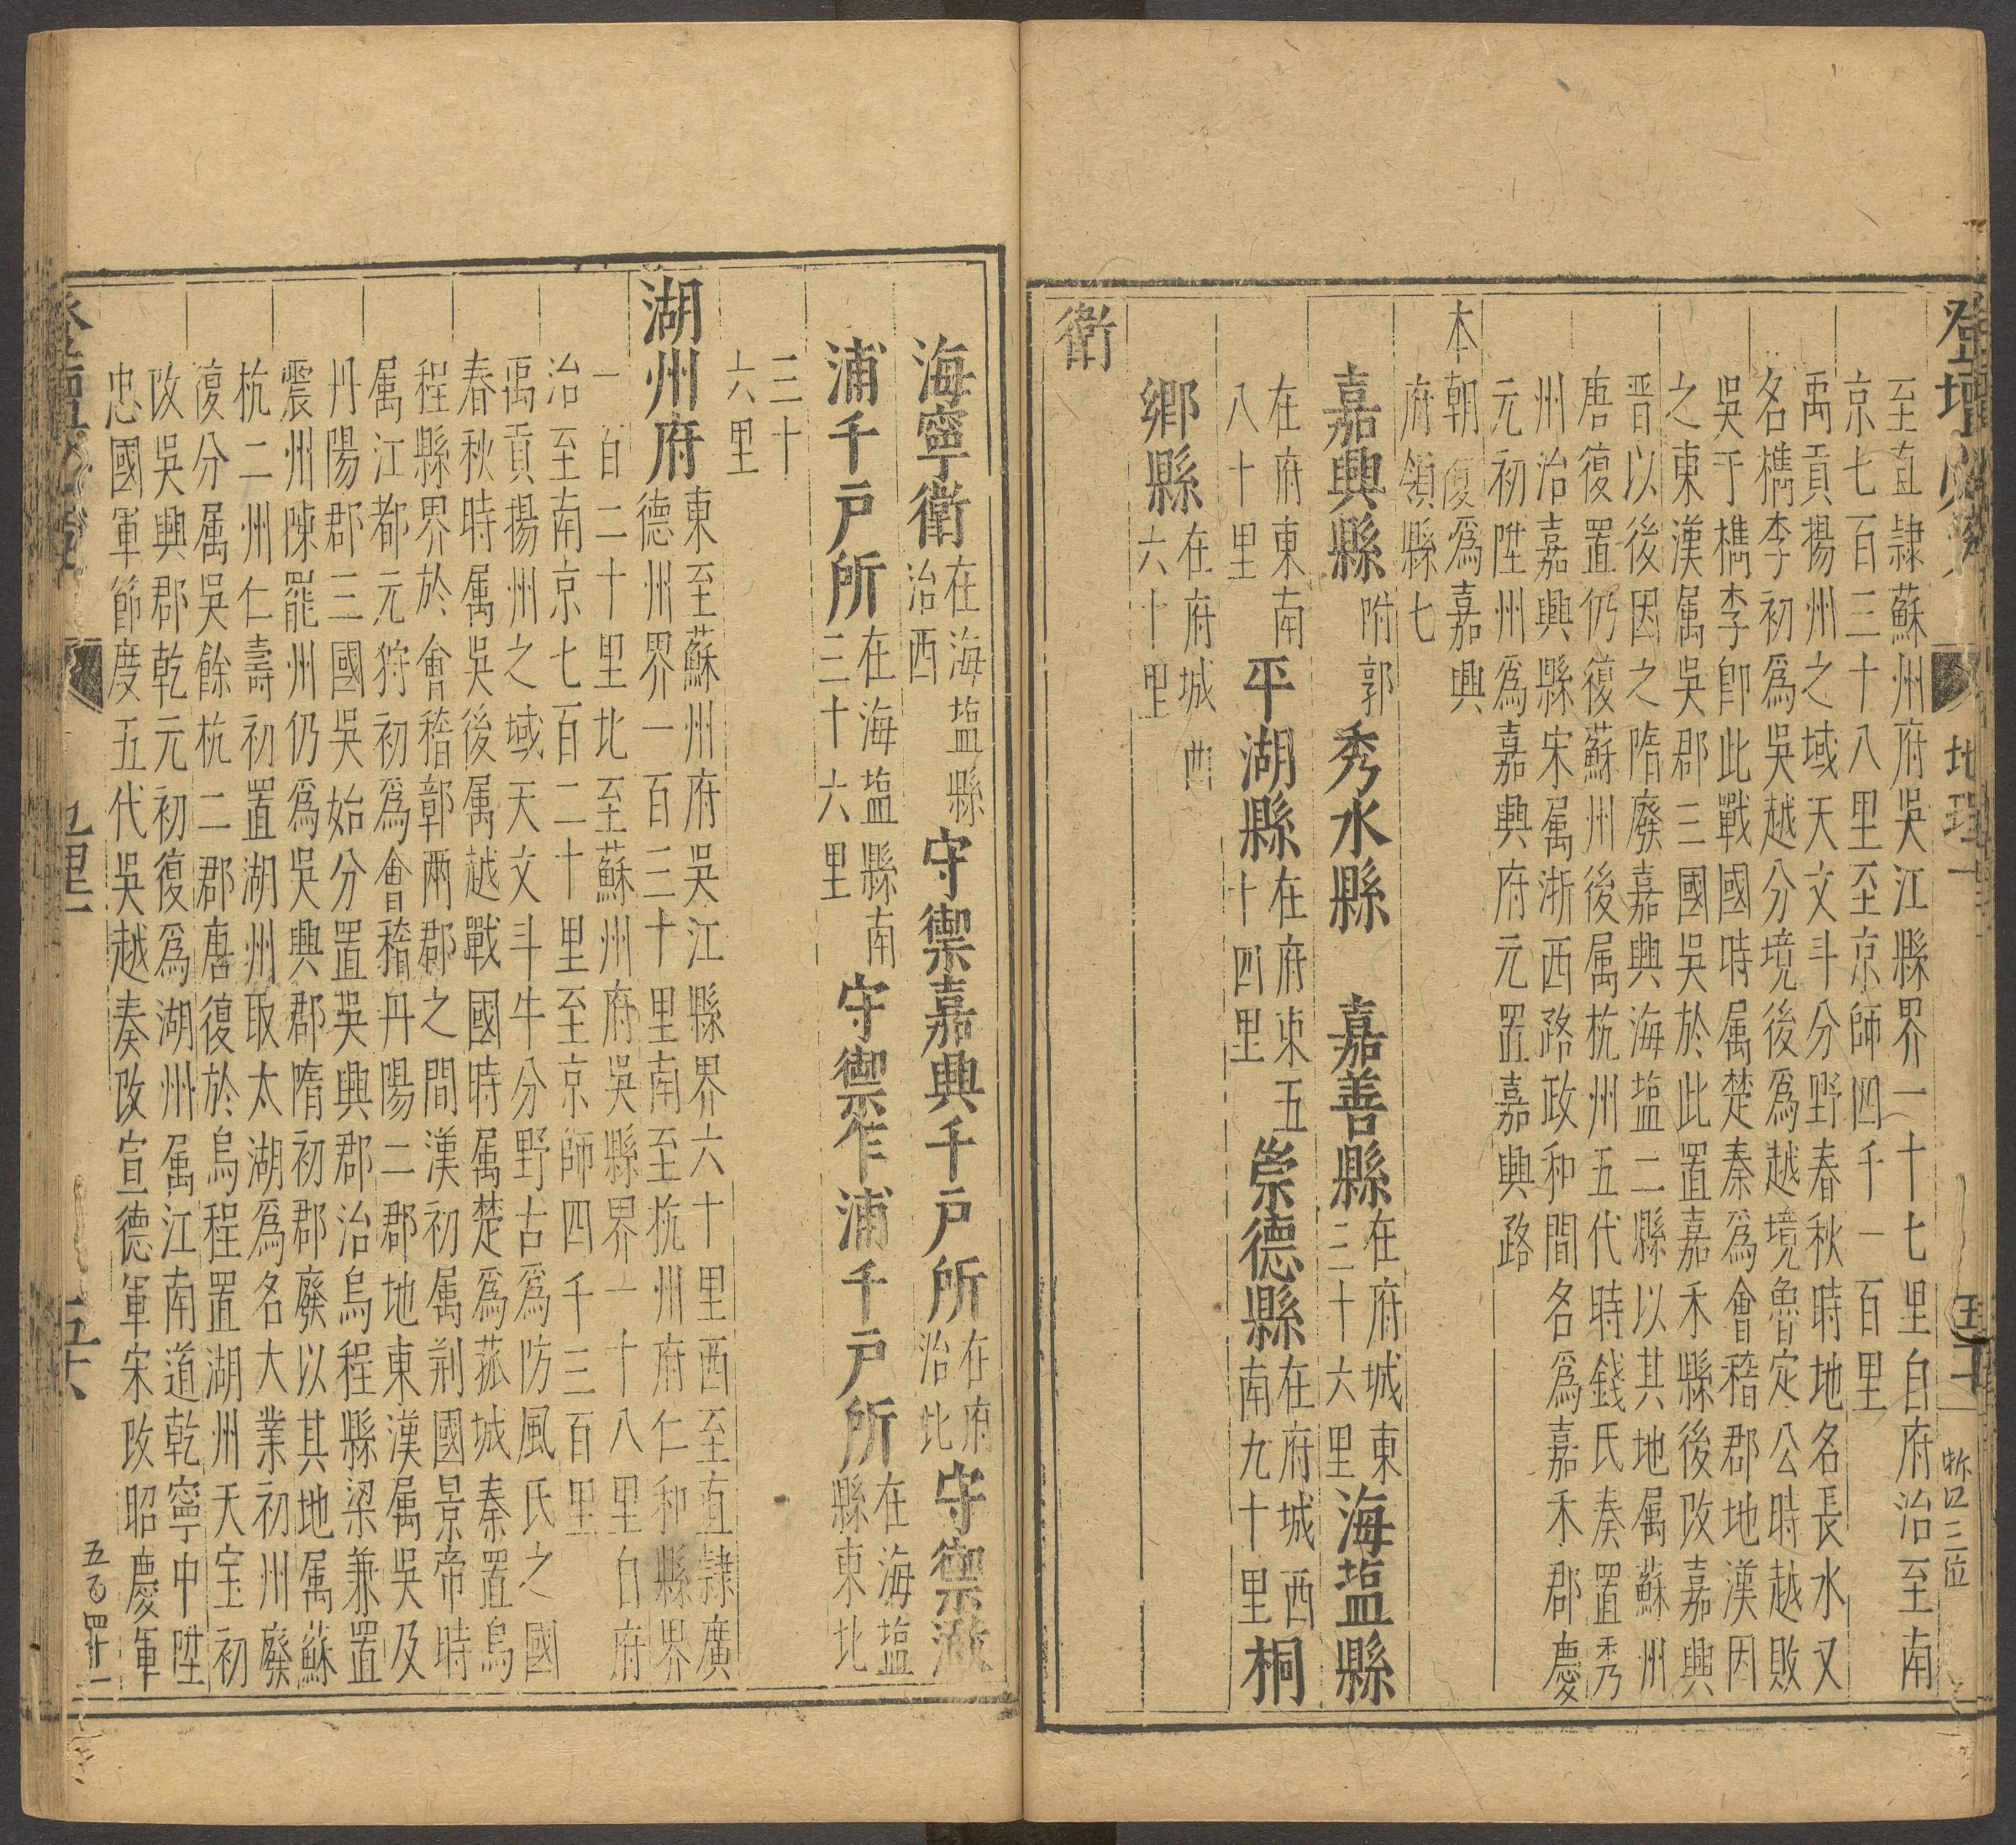 登壇必究
地理一
至直隷蘇州府吳江縣界一十七里自府治至南
京七百三十八里至京師四千一百里
禹貢揚州之域天文斗分野春秋時地名長水又
名檇李初爲吳越分境後爲越境魯定公時越敗
吳于檇李即此戰國時属楚秦爲會稽郡地漢因
之東漢属吳郡三國吳於此置嘉禾縣後改嘉興
晋以後因之隋廢嘉興海塩二縣以其地属蘇州
唐復置仍復蘇州後属杭州五代時錢氏奏置秀
州治嘉興縣宋属浙西路政和間名爲嘉禾郡慶
元初陞州爲嘉興府元置嘉興路
本朝復爲嘉興
府領縣七
嘉興縣附郭 秀水縣 嘉善縣在府城東三十六里海塩縣
在府東南八十里平湖縣在府東五十四里崇德縣在府城西南九十里桐
鄉縣在府城西六十里
衛
海寧衛在海塩縣治西守禦嘉興千戶所在府治北守禦澉
浦千戶所在海塩縣南三十六里守禦乍浦千戶所在海塩縣東北
三十六里
湖州府東至蘇州府吳江縣界六十里西至直隷廣
德州界一百三十里南至杭州府仁和縣界
一百二十里北至蘇州府吳縣界一十八里自府
治至南京七百二十里至京師四千三百里
禹貢揚州之域天文斗牛分野古爲防風氏之國
春秋時属吳後属越戰國時属楚爲菰城秦置烏
程縣界於會稽鄣兩郡之間漢初属荆國景帝時
属江都元狩初爲會稽丹陽二郡地東漢属吳及
丹陽郡三國吳始分置吳興郡治烏程縣梁兼置
震州陳罷州仍爲吳興郡隋初郡廢以其地属蘇
杭二州仁壽初置湖州取太湖爲名大業初州廢
復分属吳餘杭二郡唐復於烏程置湖州天宝初
改吳興郡乾元初復爲湖州属江南道乾寧中陞
忠國軍節度五代吳越奏改宣德軍宋改昭慶軍
五百四十二